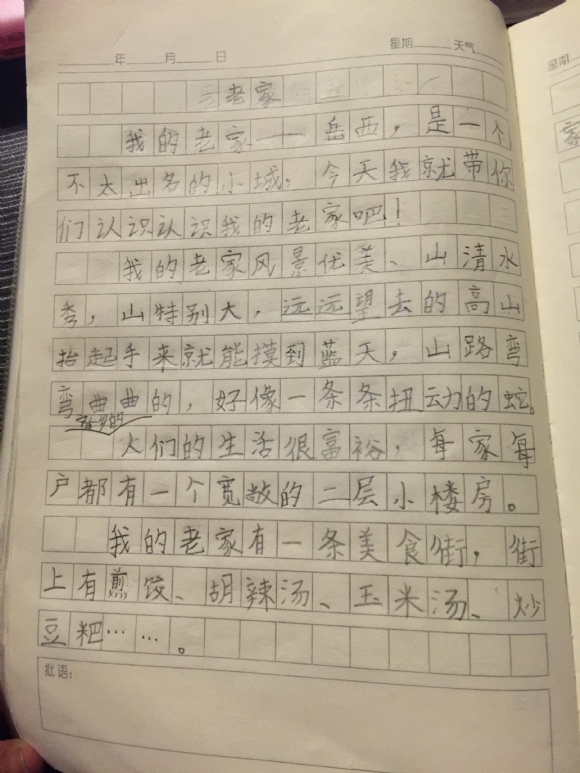 年 月 日 星期 天气
老家
我的老家——岳西，是一个
不太出名的小城。今天我就带你
们认识认识我的老家吧！
我的老家风景优美、山清水
秀，山特别大，远远望去的高山
抬起手来就能摸到蓝天，山路弯
弯曲曲的，好像一条条扭动的蛇。
人们的生活很富裕，每家每
户都有一个宽敞的二层小楼房。
我的老家有一条美食街，街
上有煎饺、胡辣汤、玉米汤、炒
豆粑……。
批语：
星期